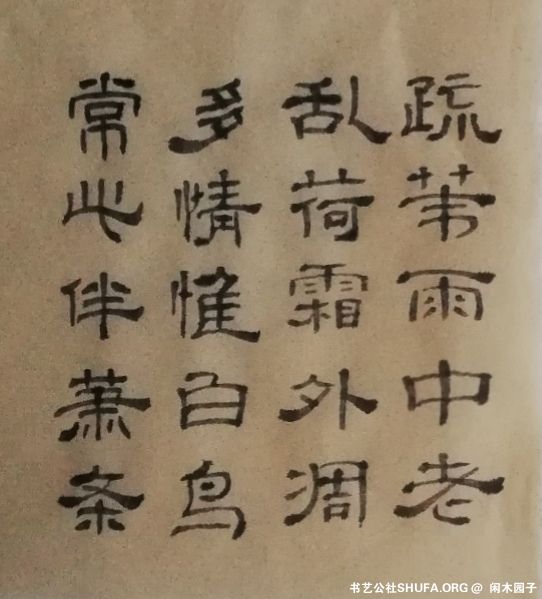 疏苇雨中老
乱荷霜外凋
多情惟白鸟
常此伴萧条
书艺公社SHUFA.ORG @ 闲木园子